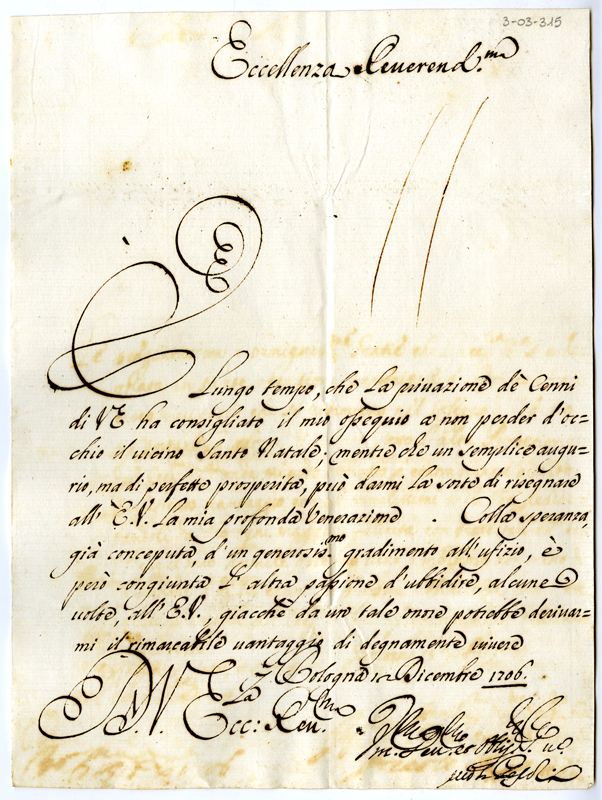 3-03-315
Eccellenza Reuerend.ma
È Lungo tempo, che La priuazione de Cenni
di V.E. ha consigliato il mio ossequio a non perder d'oc=
chio il uicino Santo Natale; mentre che un semplice augu=
rio, ma di perfette prosperità, può darmi La sorte di risegnare
all' E.V. La mia profonda Venerazione. Colla speranza,
già conceputa, d'un generosis.mo gradimento all'ufizio, è
però congiunta L' altra passione d'ubbidire, alcune
uolte, all' E.V., giacchè da un tale onore potrebbe deriuar=
mi il rimarcabile uantaggio di degnamente uiuere
Bologna Dicembre 1706.
D. V. Ecc:za Reu.ma